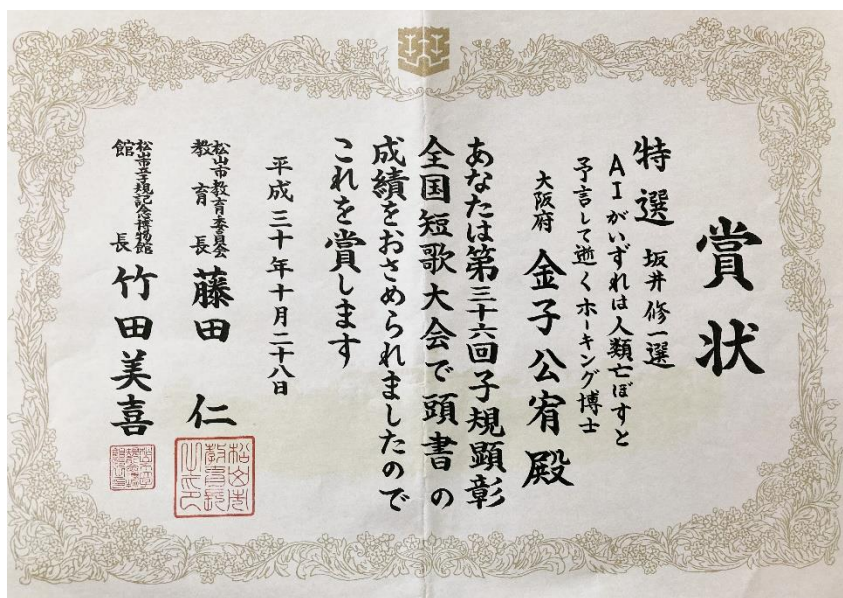 賞状
特選 坂井修一選
AIがいずれは人類亡ぼすと
予言して逝くホーキング博士
大阪府 金子公宥殿
あなたは第三十六回子規顕彰
全国短歌大会で頭書の
成績をおさめられましたので
これを賞します
平成三十年十月二十八日
松山市教育委員会
教育長 藤田 仁
松山市立子規記念博物館
館長 竹田美喜